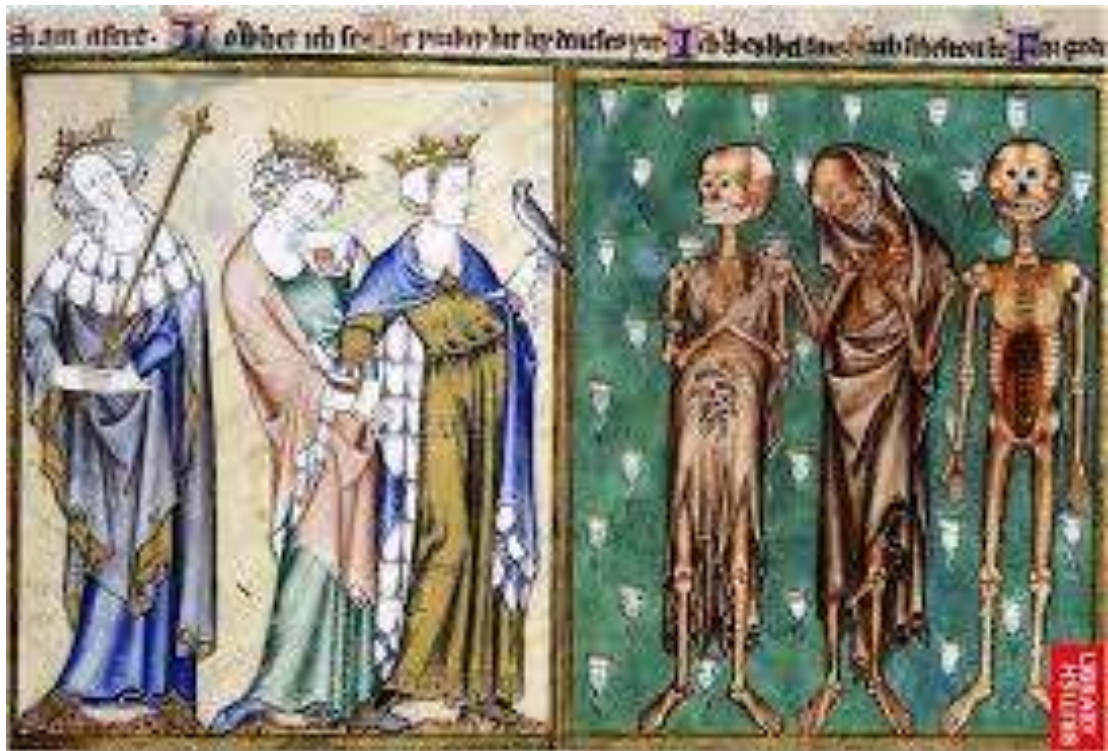 ch am afert. Lo whet ich se. Me þinkes hit bey deueles þre. Ich wes wel fair. Such scheltou be. For gode
BRITISH
LIBRARY